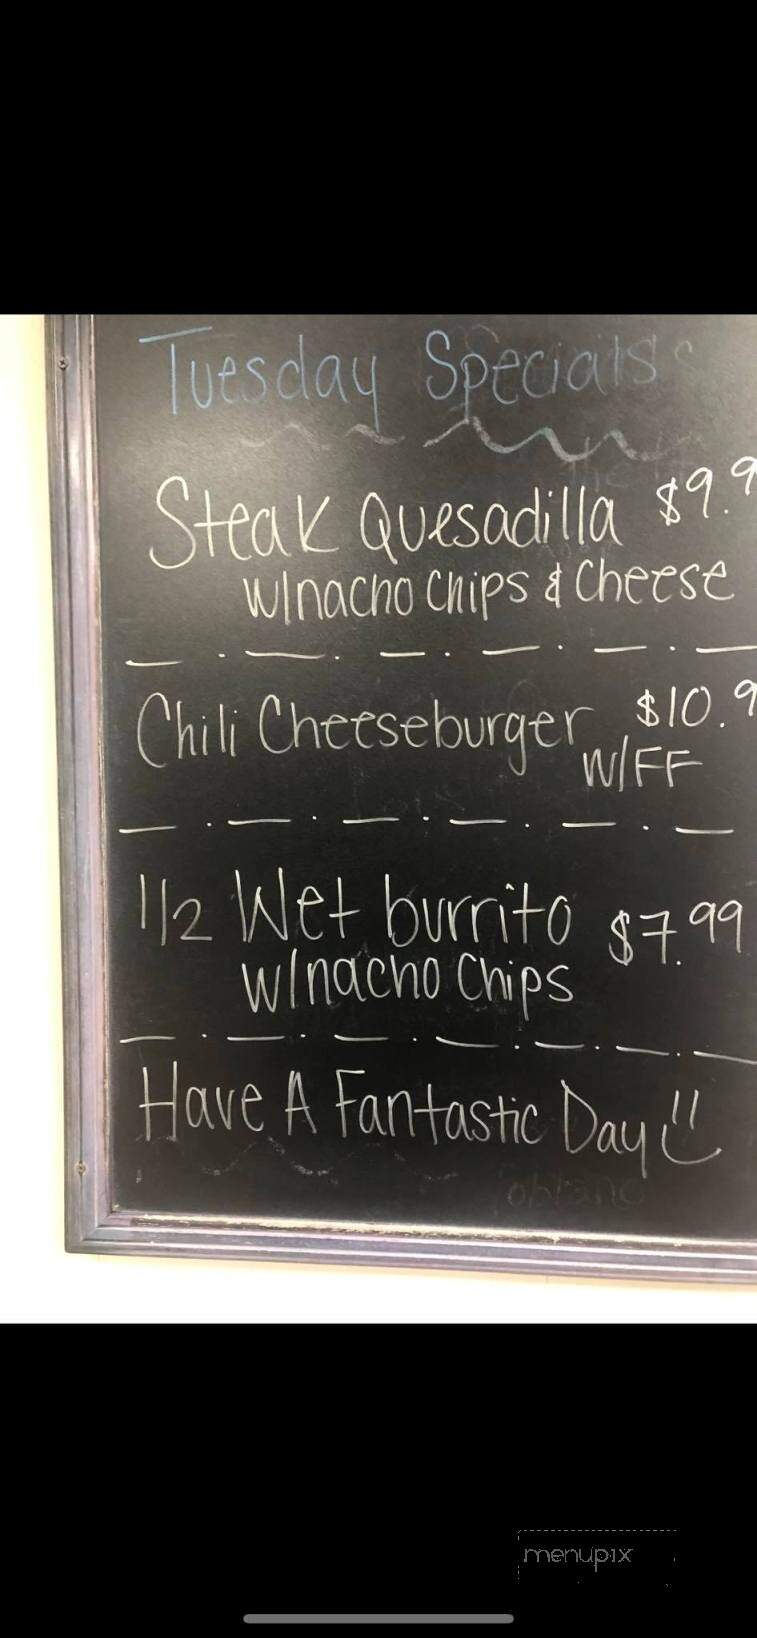 Tuesday Specials
Steak Quesadilla $9.9
w/nacho chips & Cheese
Chili Cheeseburger $10.9
W/FF
1/2 Wet burrito $7.99
w/nacho Chips
Have A Fantastic Day
menupix